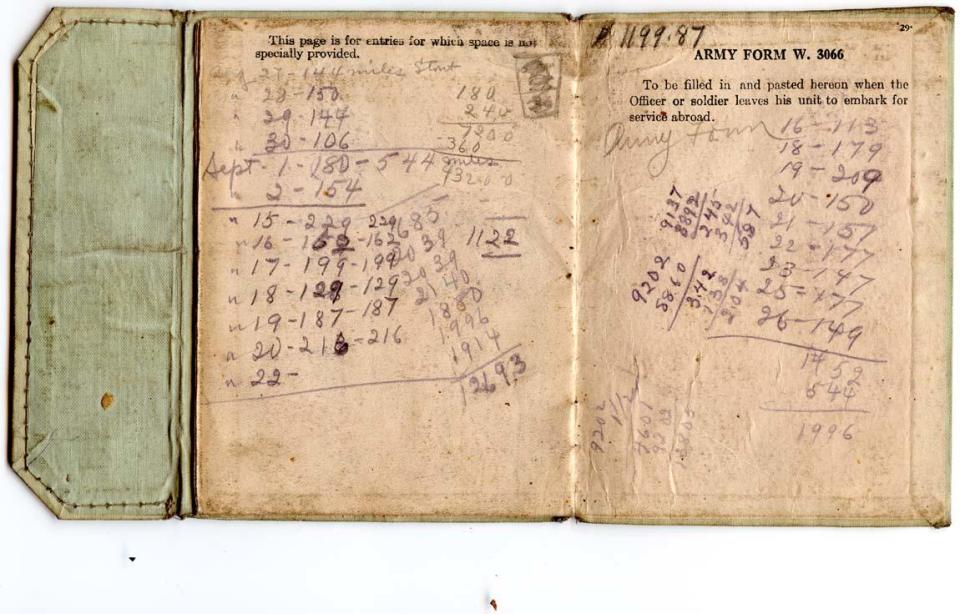 This page is for entries for which space is not
specially provided.
27 - 144 miles
" 28 - 150
" 29 - 144
" 30 - 106
Sept. 1 - 180 - 544 miles
" 2 - 154
180
240
7200
360
43200
" 15 - 229 229
" 16 - 162 - 162
" 17 - 199 - 199
" 18 - 129 - 129
" 19 - 187 - 187
" 20 - 216 - 216
" 22 -
1122
2039
2039
1996
1914
12693
1199.87
29
ARMY FORM W. 3066
To be filled in and pasted hereon when the
Officer or soldier leaves his unit to embark for
service abroad.
Army Form
16 - 113
18 - 179
19 - 209
20 - 150
21 - 157
22 - 177
23 - 147
25 - 177
26 - 149
1459
544
1996
9137
8892
245
342
587
9202
5860
3.42
9202
1/2
4601
9202
13803